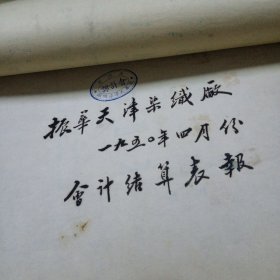 振华天津染織厰
一九五〇年四月份
會计结算表報